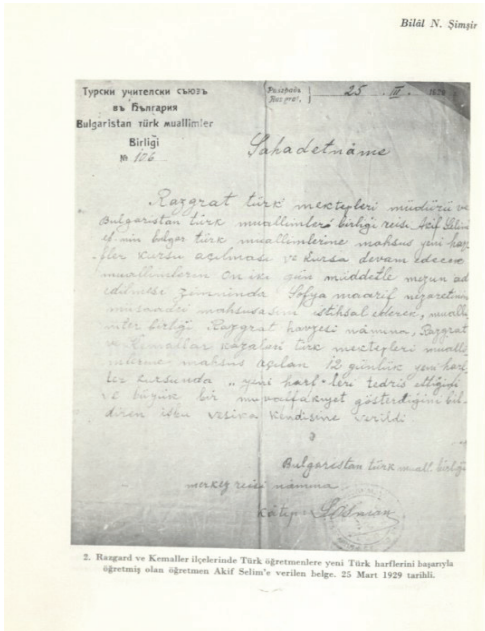 Bilâl N. Şimşir
Турски учителски съюзъ
въ България
Bulgaristan türk muallimler
Birliği
№ 106
Разградъ
Razgrat,
25 III 192
Şahadetnâme
Razgrat türk mektepleri müdürü ve
Bulgaristan türk muallimleri birliği reisi Akif Selim
ef-nin bulgar türk muallimlerine mahsus yeni harf
fler kursu açılması ve kursa devam edecek
muallimlerin on iki gün müddetle mezun ad
edilmesi zımnında Sofya maarif nezaretinin
müsaadei mahsusasını istihsal ederek, mualli
mler birliği Razgrat havzesi nâmına, Razgrat
ve Kemallar kazalası türk mektepleri mualli
mlerine mahsus açılan 12 günlük yeni harf
ler kursunda „yeni harf"leri tedris ettiğini
ve büyük bir muvaffakıyet gösterdiğini bil
diren işbu vesika kendisine verildi
Bulgaristan türk mual! birliği
merkez reisi nâmına
kâtep:
2. Razgard ve Kemaller ilçelerinde Türk öğretmenlere yeni Türk harflerini başarıyla
öğretmiş olan öğretmen Akif Selim'e verilen belge. 25 Mart 1929 tarihli.